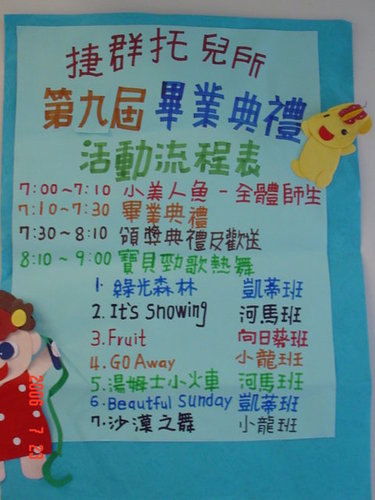 捷群托兒所
第九屆畢業典禮
活動流程表
7:00~7:10 小美人魚-全體師生
7:10~7:30 畢業典禮
7:30~8:10 頒獎典禮及歡送
8:10~9:00 寶貝勁歌熱舞
1. 綠光森林 凱蒂班
2. It's Snowing 河馬班
3. Fruit 向日葵班
4. GO Away 小龍班
5. 湯姆士小火車 河馬班
6. Beautful Sunday 凱蒂班
7. 沙漠之舞 小龍班
2006 7 23